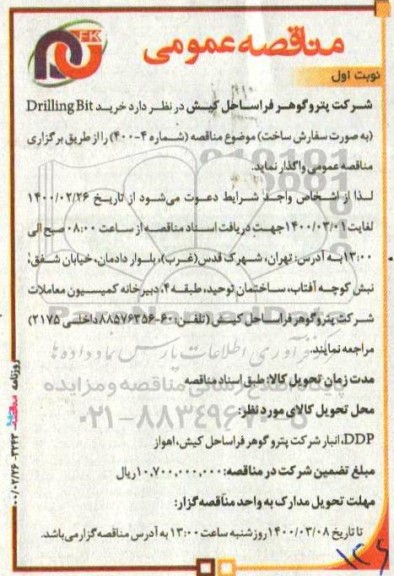 مناقصه عمومی
نوبت اول
شرکت پتروگوهر فراساحل کیش در نظر دارد خرید Drilling Bit
(به صورت سفارش ساخت) موضوع مناقصه (شماره ۴-۴۰۰) را از طریق برگزاری
مناقصه عمومی واگذار نماید.
لذا از اشخاص واجد شرایط دعوت می‌شود از تاریخ ۱۴۰۰/۰۲/۲۶
لغایت ۱۴۰۰/۰۳/۰۱ جهت دریافت اسناد مناقصه از ساعت ۰۸:۰۰ صبح الی
۱۳:۰۰ به آدرس: تهران، شهرک قدس (غرب)، بلوار دادمان، خیابان شفق،
نبش کوچه آفتاب، ساختمان توحید، طبقه ۴، دبیرخانه کمیسیون معاملات
شرکت پتروگوهر فراساحل کیش (تلفن: ۶۰-۸۸۵۷۶۳۵۶ داخلی ۲۱۷۵)
مراجعه نمایند.
مدت زمان تحویل کالا: طبق اسناد مناقصه
محل تحویل کالای مورد نظر:
DDP، انبار شرکت پتروگوهر فراساحل کیش، اهواز
مبلغ تضمین شرکت در مناقصه: ۱۰,۷۰۰,۰۰۰,۰۰۰ ریال
مهلت تحویل مدارک به واحد مناقصه‌گزار:
تا تاریخ ۱۴۰۰/۰۳/۰۸ روز شنبه ساعت ۱۳:۰۰ به آدرس مناقصه‌گزار می‌باشد.
روزنامه مناقصه ۳۲۴۳-۰۰/۰۲/۲۶
۰۲۱-۸۸۳۴۹۶۷۰-۵